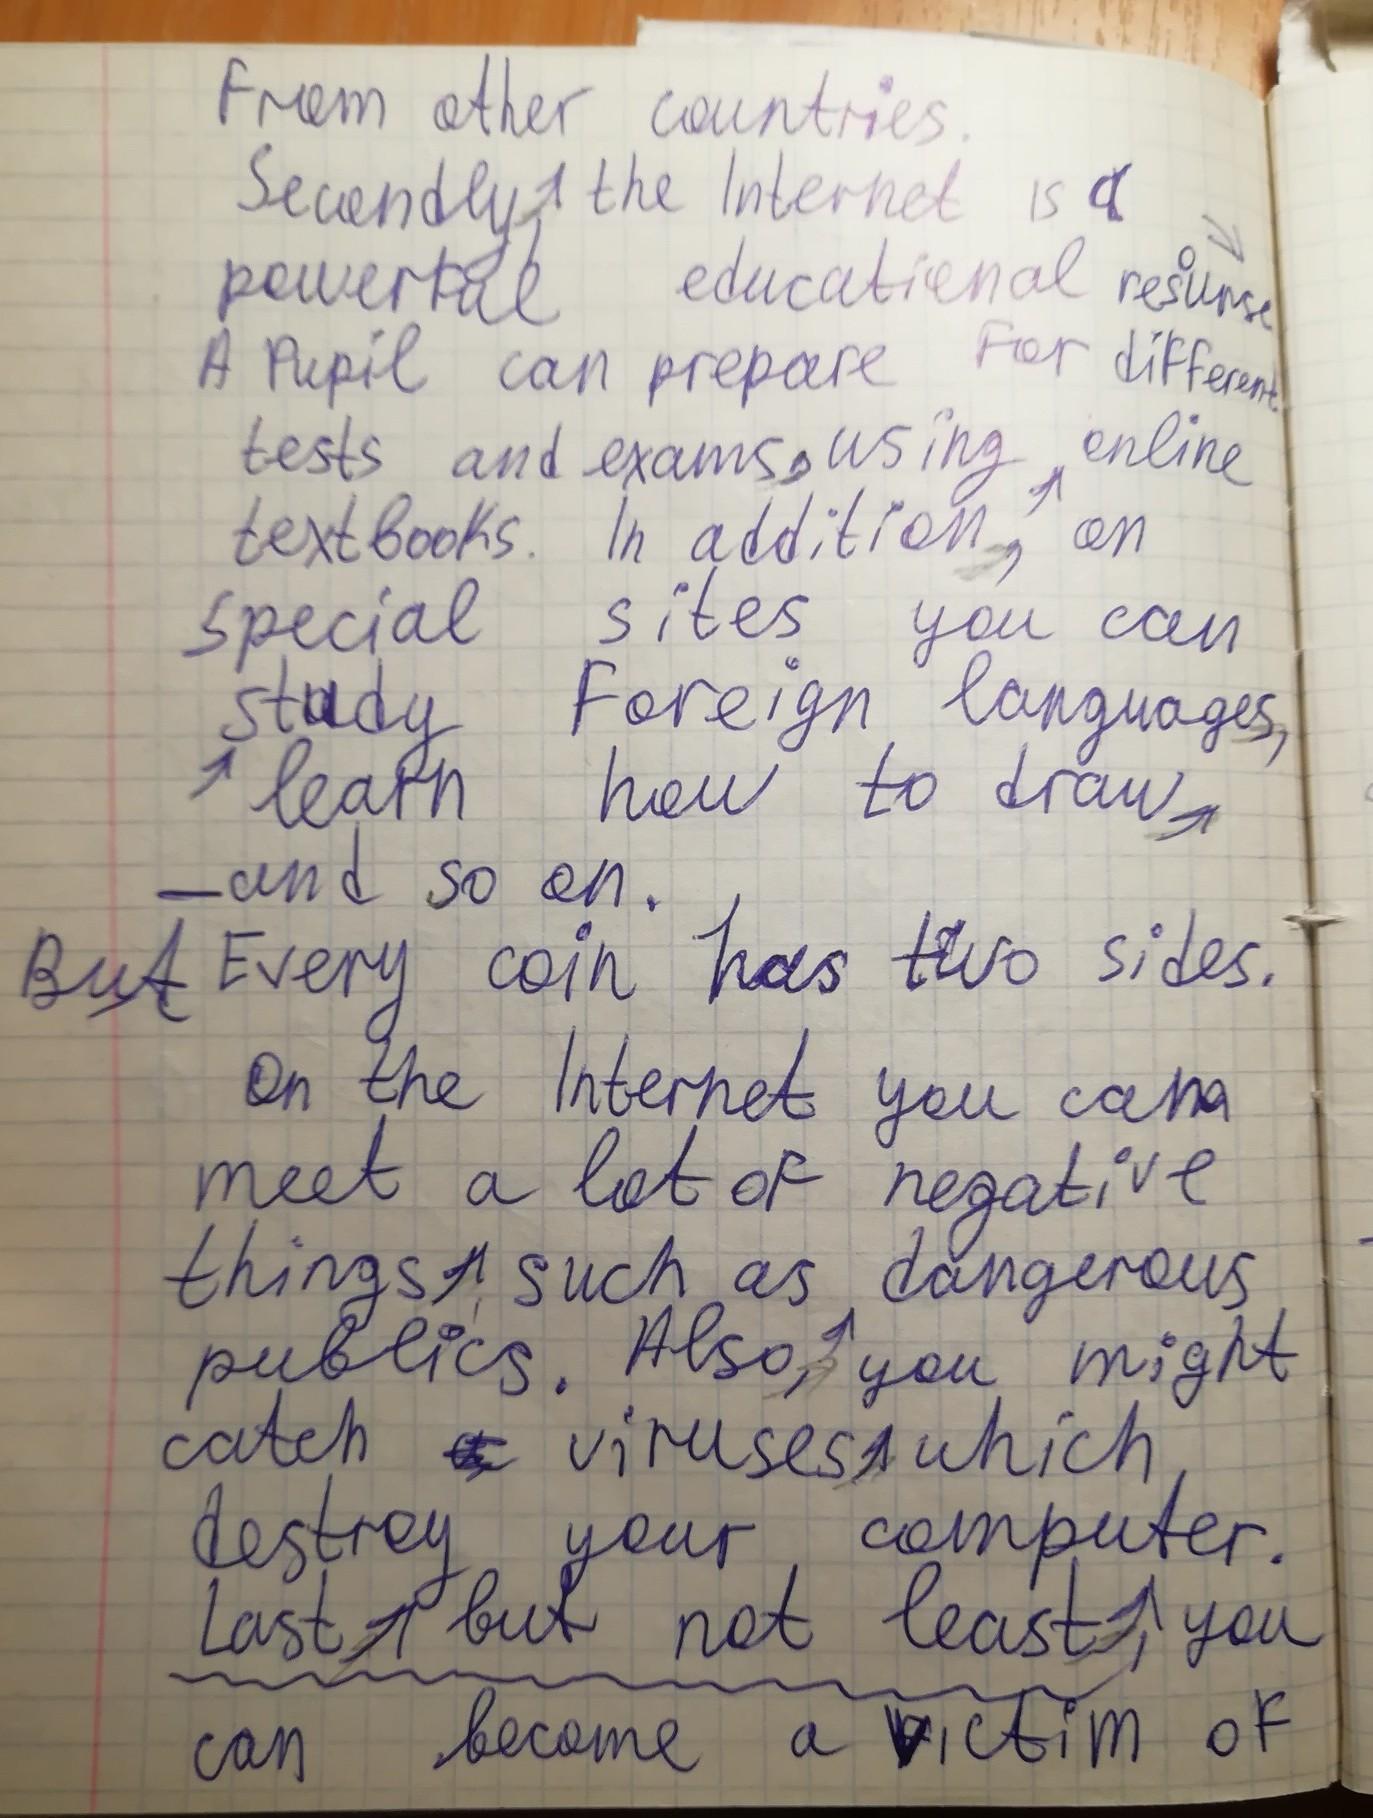 From other countries.
Secondly, the Internet is a
powerful educational resourse
A Pupil can prepare For different
tests and exams, using online
textbooks. In addition, on
special sites you can
study Foreign languages,
learn how to draw,
and so on.
But Every coin has two sides.
On the Internet you can
meet a lot of negative
things, such as dangerous
publics. Also, you might
catch viruses, which
destroy your computer.
Last, but not least, you
can become a victim of